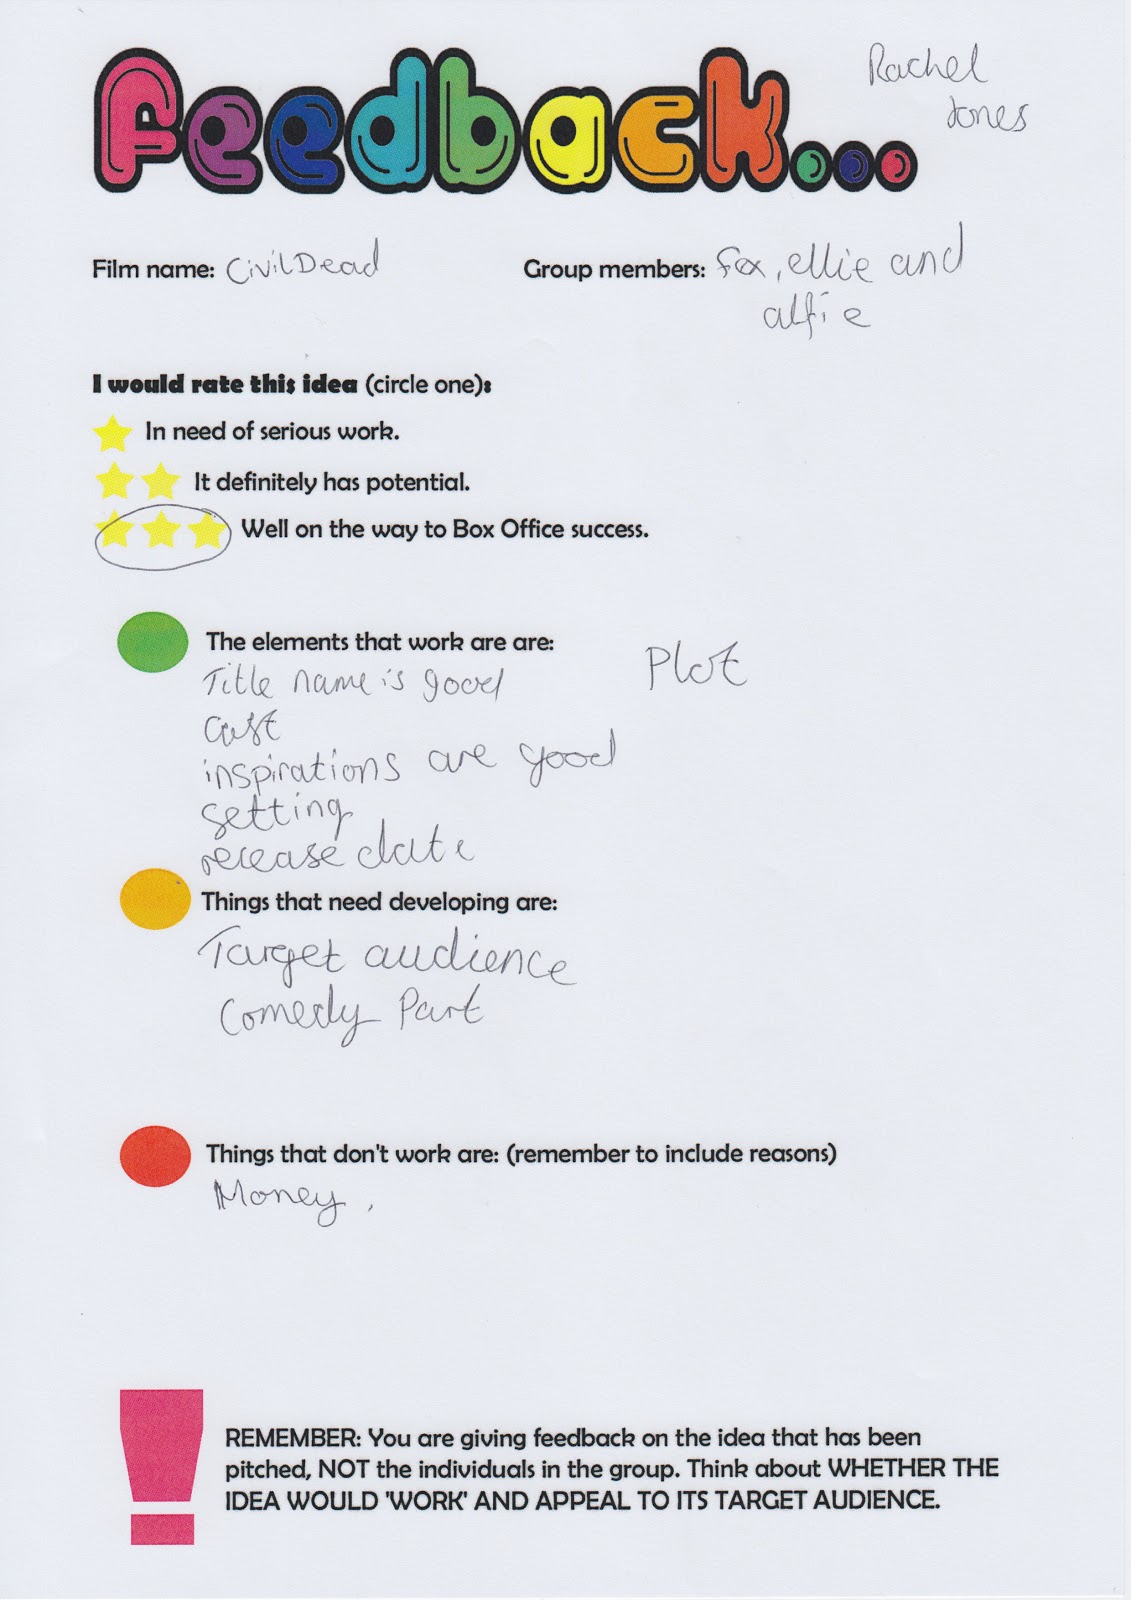 Feedback...
Rachel
Jones
Film name: CivilDead
Group members: Fox, ellie and
alfie
I would rate this idea (circle one):
In need of serious work.
It definitely has potential.
Well on the way to Box Office success.
The elements that work are are:
Title name is good
Plot
cast
inspirations are good
setting
release date
Things that need developing are:
Target audience
Comedy Part
Things that don't work are: (remember to include reasons)
Money.
REMEMBER: You are giving feedback on the idea that has been
pitched, NOT the individuals in the group. Think about WHETHER THE
IDEA WOULD 'WORK' AND APPEAL TO ITS TARGET AUDIENCE.